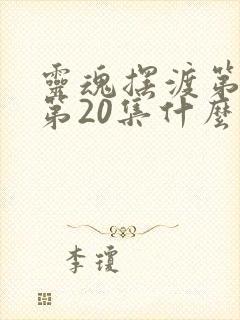 靈魂擺渡第
第20集什麼
李瓊